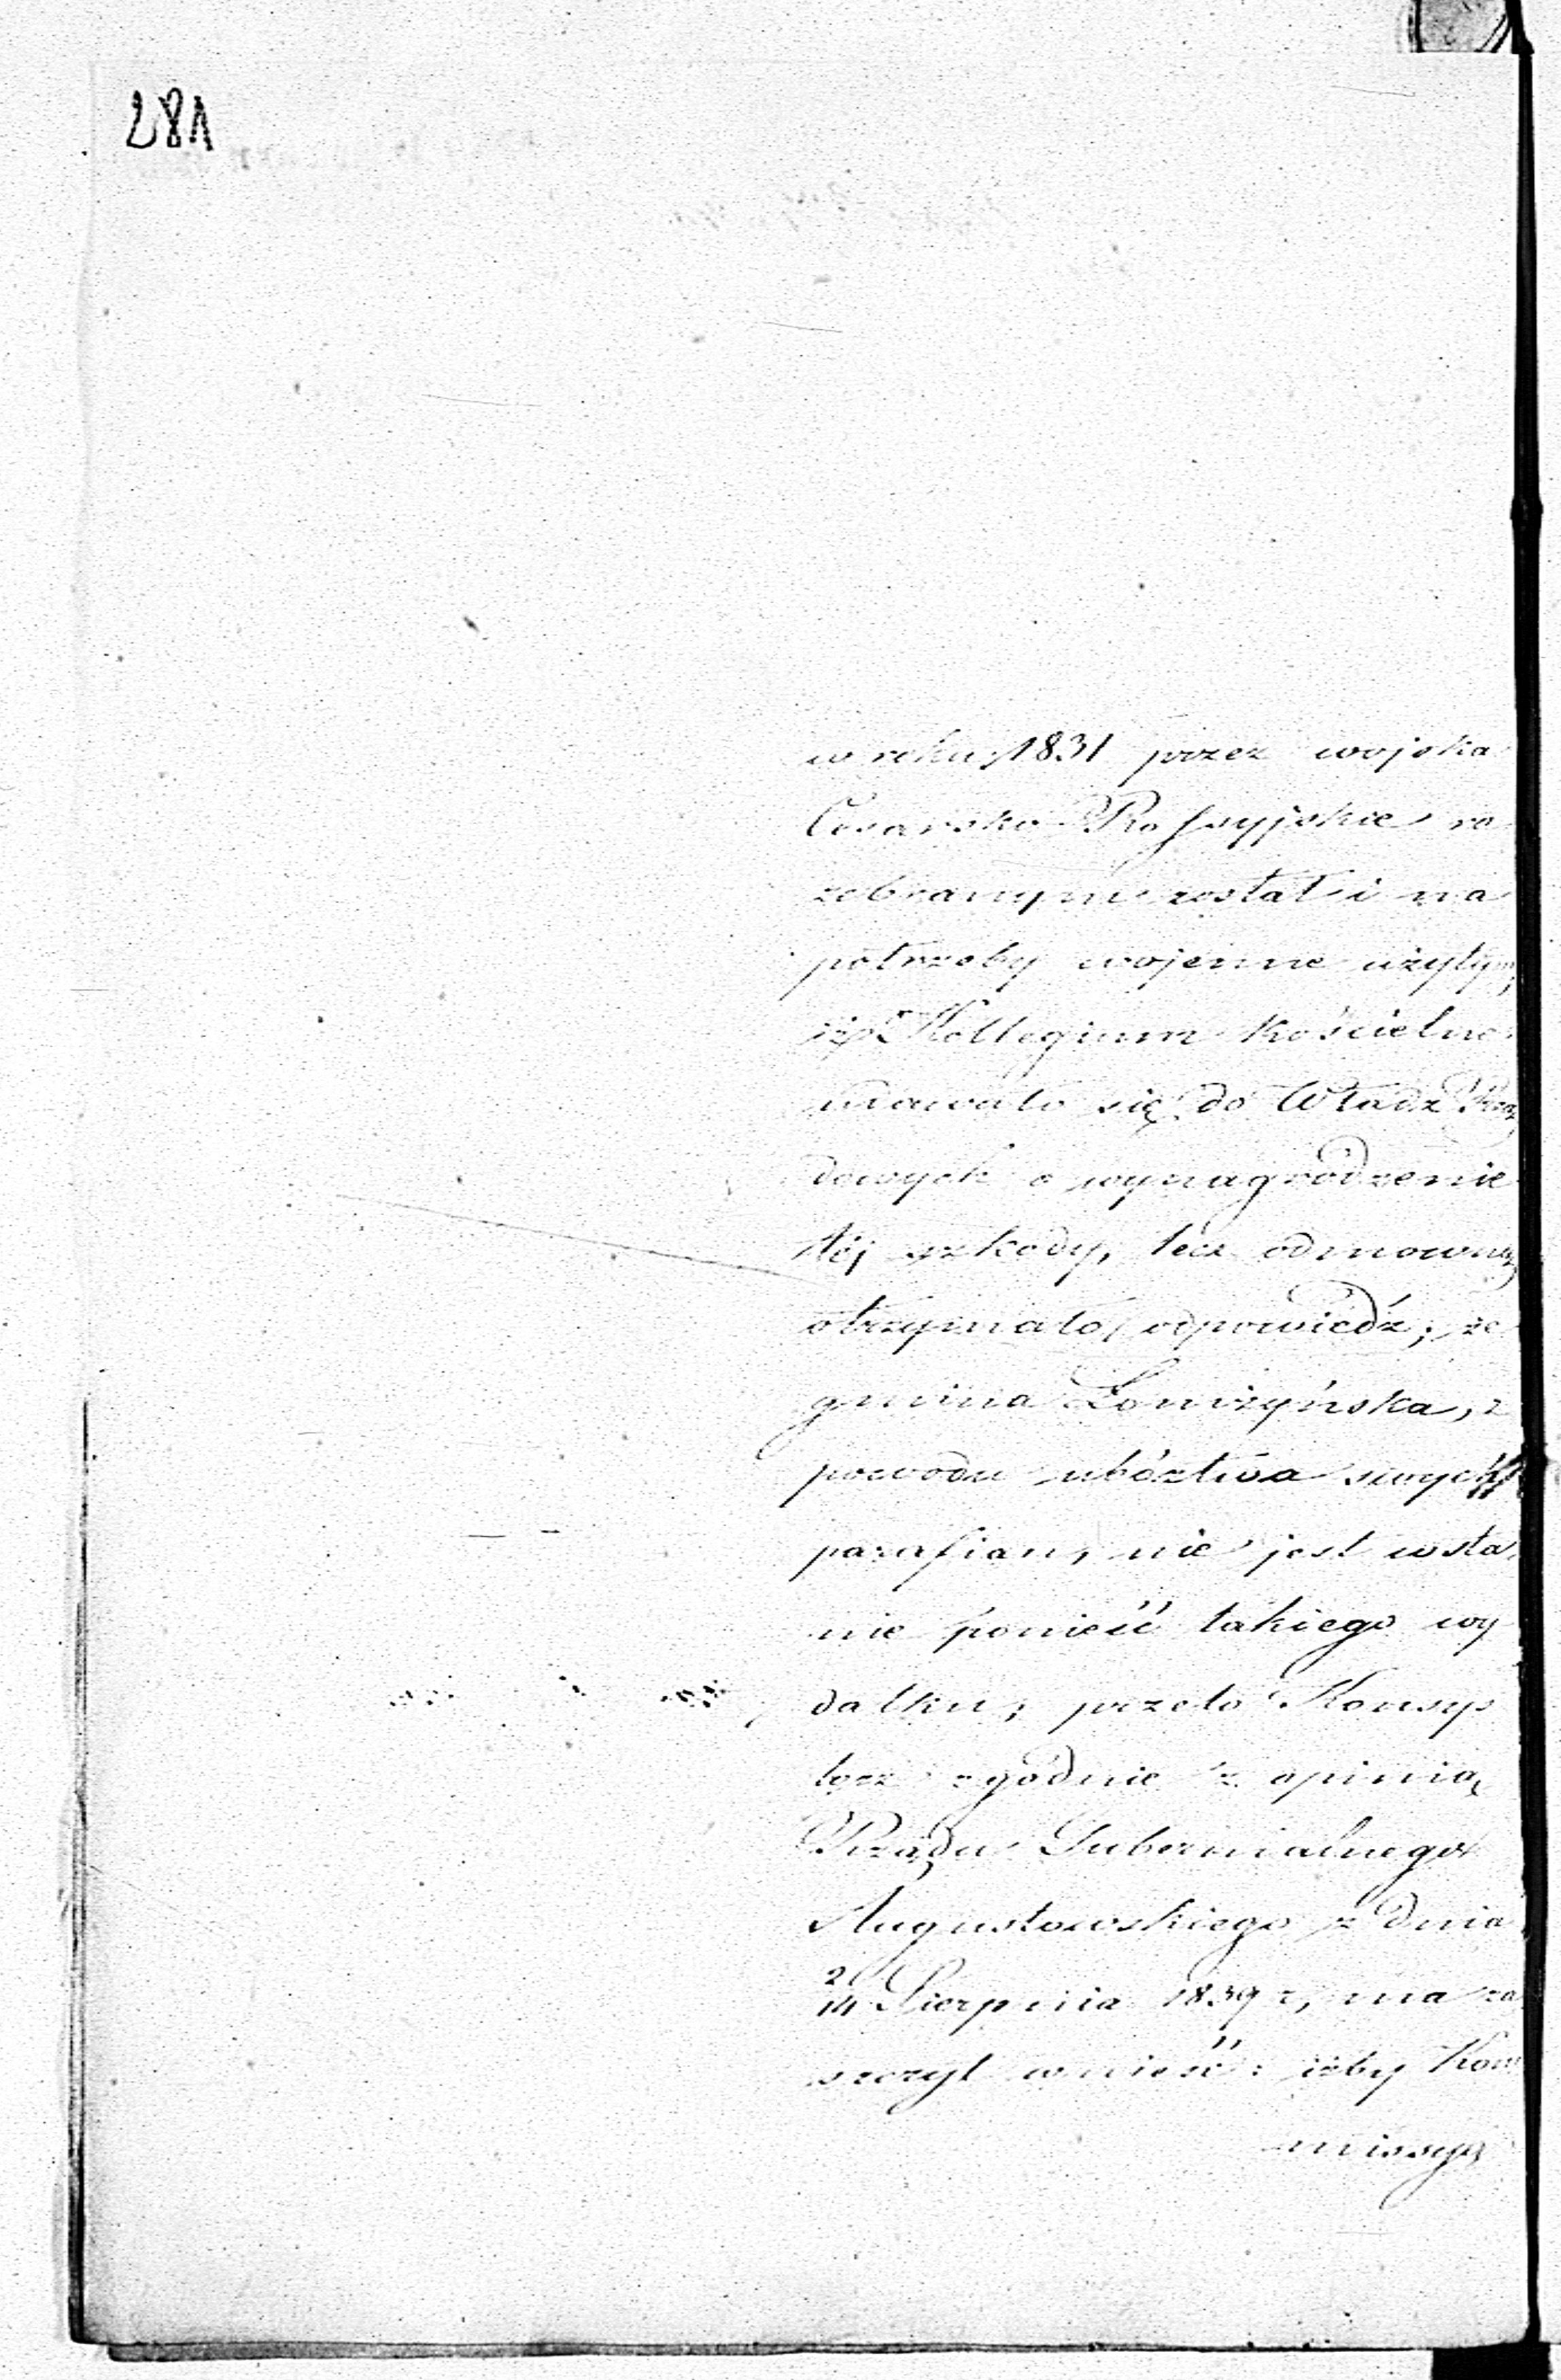 281
w roku 1831 przez wojska
Cesarsko Rossyjskie ro
zebranym został i na
potrzeby wojenne użytym,
iż Kollegium Kościelne
udawało się do Władz Rzą
dowych o wynagrodzenie
téj szkody, lecz odmowną
otrzymało odpowiedź; że
gmina Łomżyńska, z
powodu ubóztwa swych
parafian, nie jest w sta
nie ponieść takiego wy
datku; przeto Konsys
torz zgodnie z opinią
Rządu Gubernialnego
Augustowskiego z dnia
2/14 Sierpnia 1839 r, ma za
szczyt wnieść: iżby Kom
missya